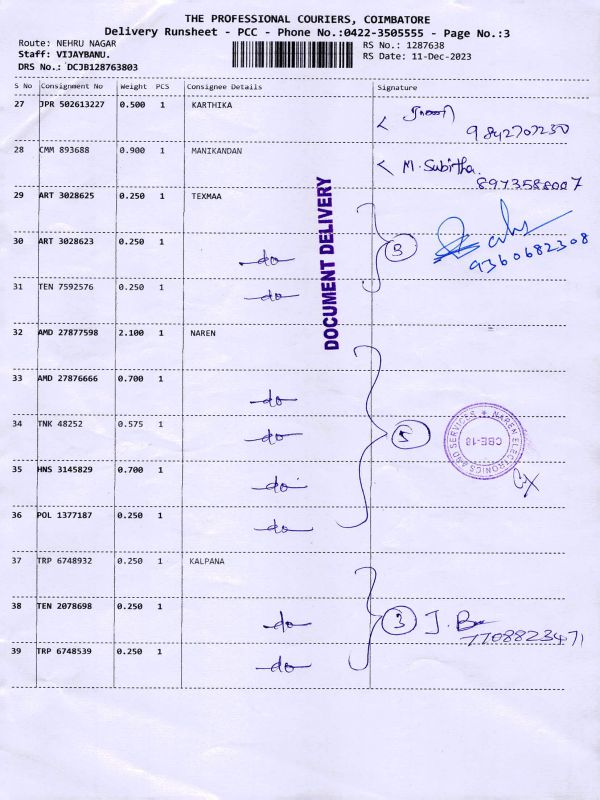 THE PROFESSIONAL COURIERS, COIMBATORE
Delivery Runsheet - PCC - Phone No.:0422-3505555 - Page No.:3
Route: NEHRU NAGAR
Staff: VIJAYBANU.
DRS No.: DCJB128763803
RS No.: 1287638
RS Date: 11-Dec-2023
S No Consignment No Weight PCS Consignee Details Signature
27 JPR 502613227 0.500 1 KARTHIKA
9842707230
28 CMM 893688 0.900 1 MANIKANDAN M. Subirtha
8973588007
29 ART 3028625 0.250 1 TEXMAA
30 ART 3028623 0.250 1 -do- 3
9360682308
31 TEN 7592576 0.250 1 -do-
DOCUMENT DELIVERY
32 AMD 27877598 2.100 1 NAREN
33 AMD 27876666 0.700 1 -do-
34 TNK 48252 0.575 1 -do- 5
NAREN ELECTRONICS AND SERVICES
CBE-18
35 HNS 3145829 0.700 1 -do-
36 POL 1377187 0.250 1 -do-
37 TRP 6748932 0.250 1 KALPANA
38 TEN 2078698 0.250 1 -do- 3
7708823471
39 TRP 6748539 0.250 1 -do-